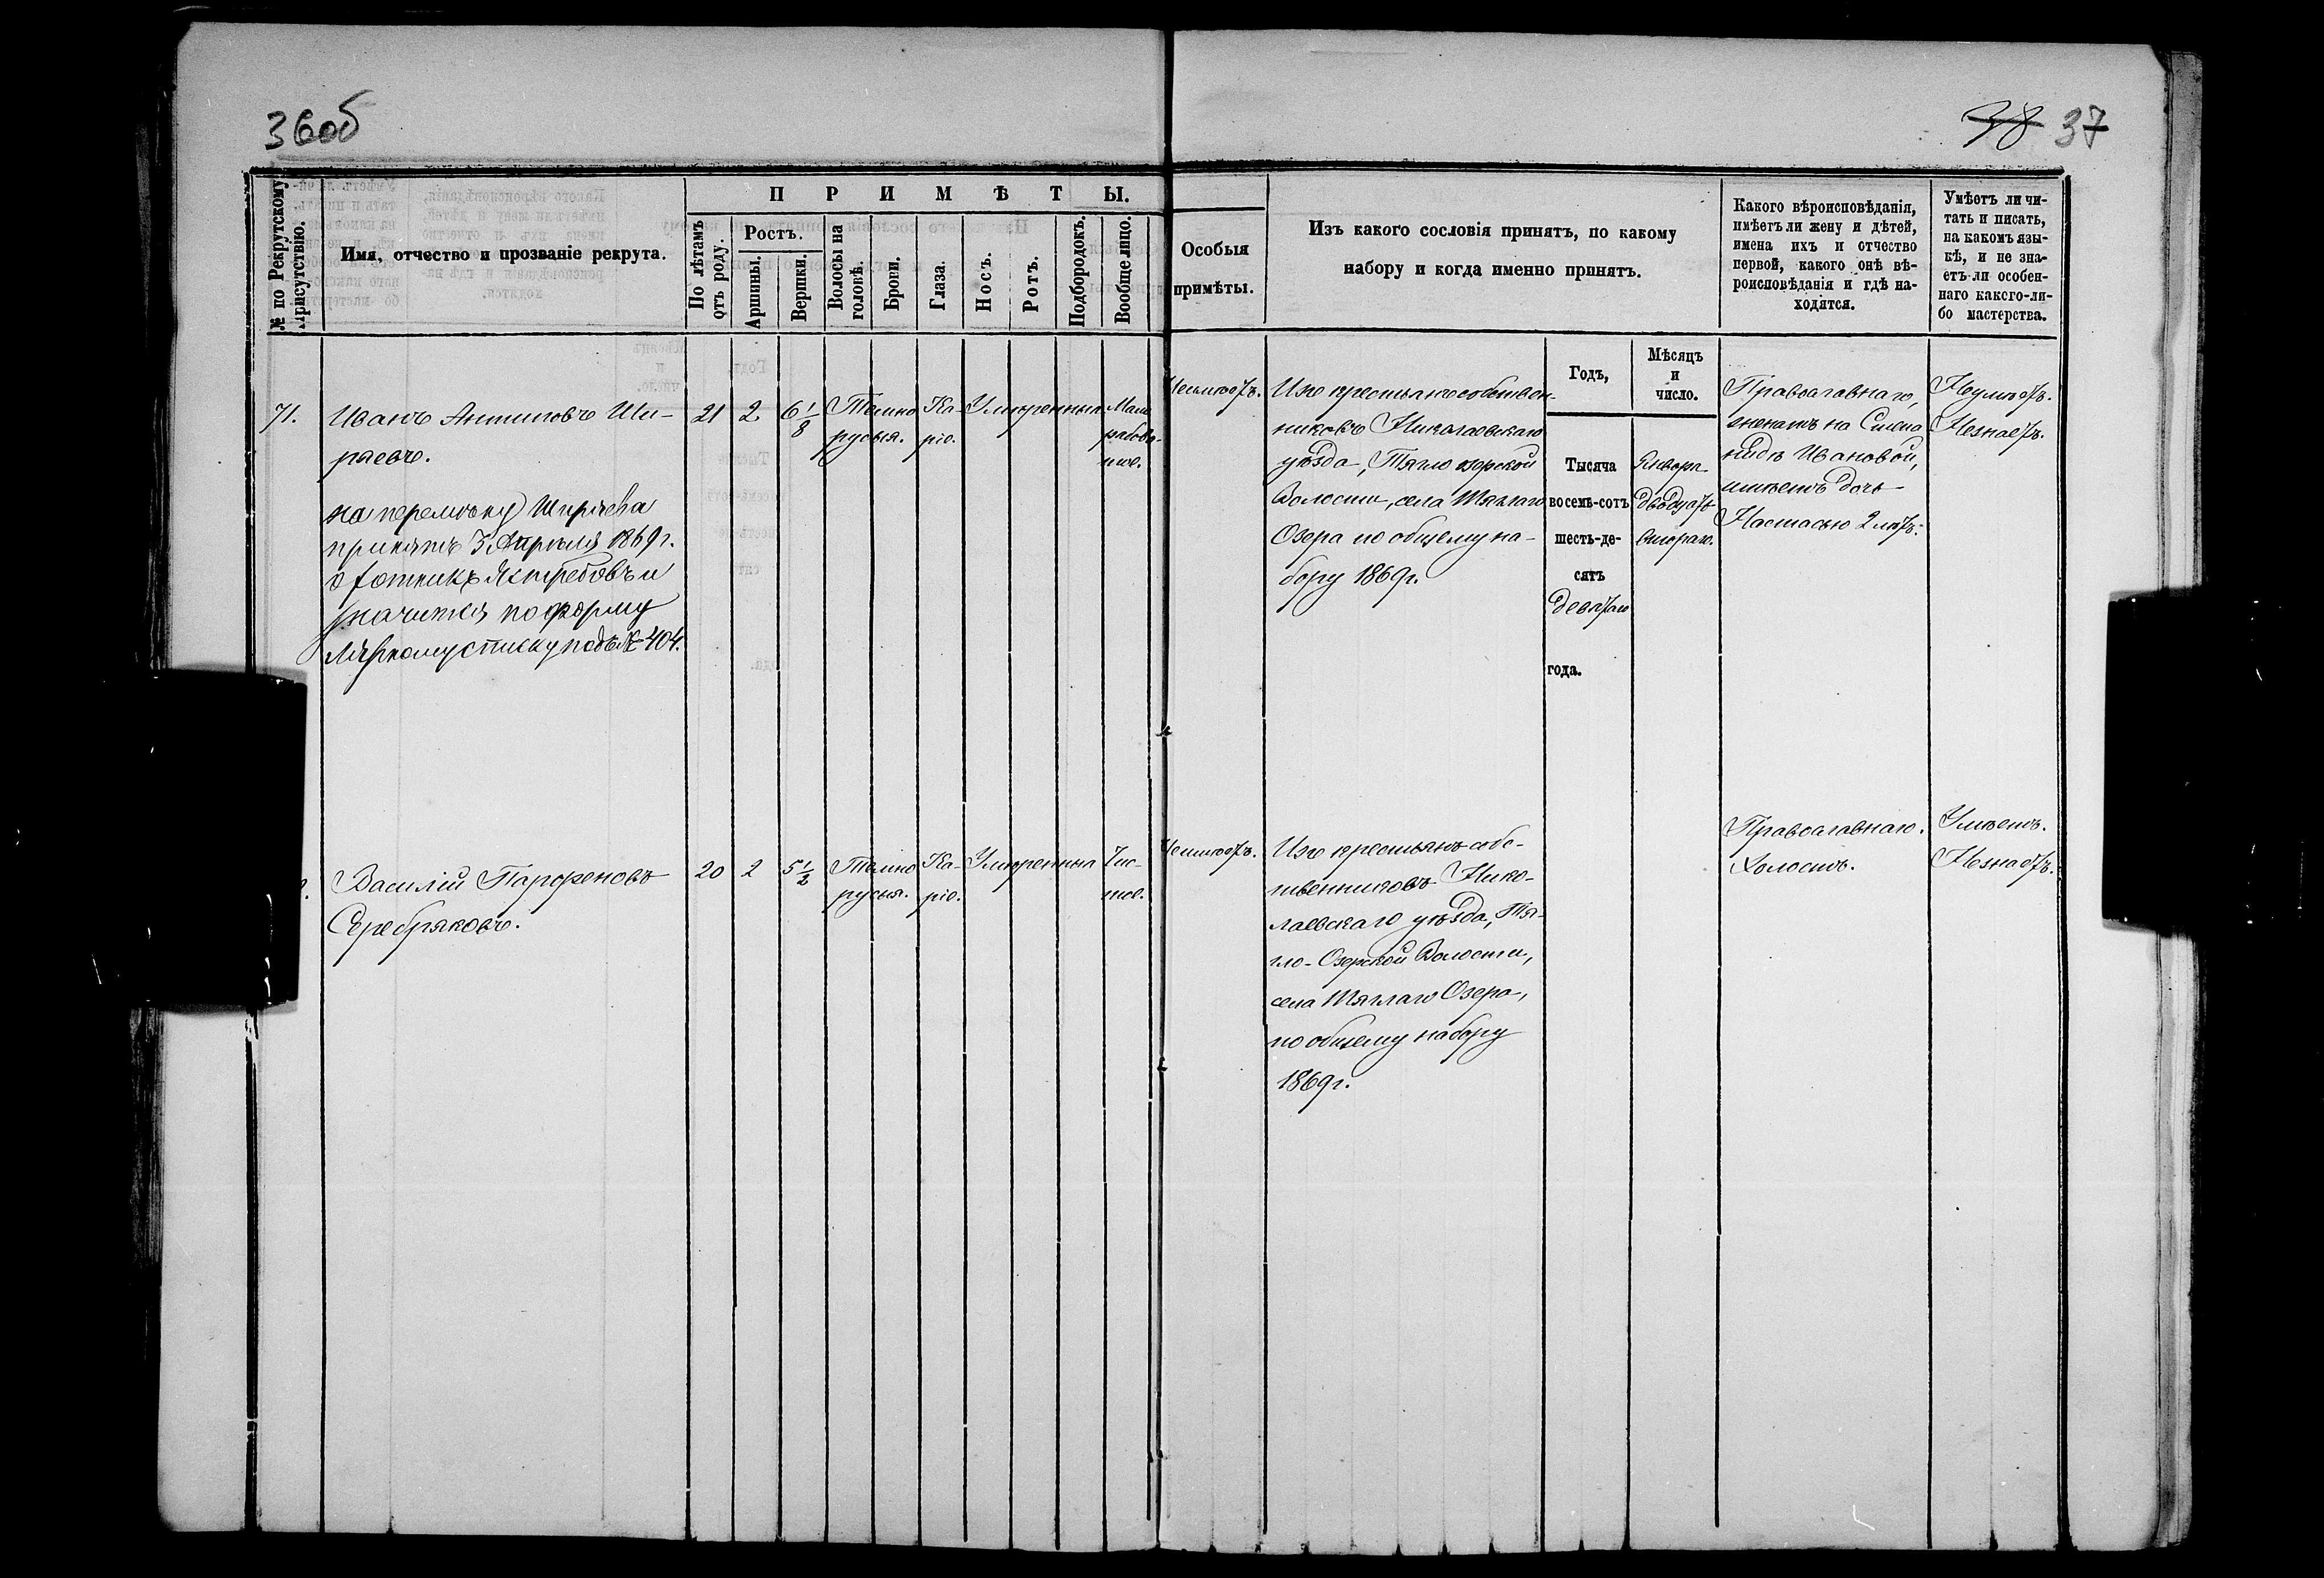 36об
38 37
№ по Рекрутскому присутствію.
Имя, отчество и прозваніе рекрута.
ПРИМѢТЫ.
По лѣтамъ отъ роду.
Ростъ.
Аршины.
Вершки.
Волосы на головѣ.
Брови.
Глаза.
Носъ.
Ротъ.
Подбородокъ.
Вообще лицо.
Особыя
примѣты.
Изъ какого сословія принятъ, по какому
набору и когда именно принятъ.
Какого вѣроисповѣданія,
имѣетъ ли жену и дѣтей,
имена ихъ и отчество
первой, какого онѣ вѣ-
роисповѣданія и гдѣ на-
ходятся.
Умѣетъ ли чи-
тать и писать,
на какомъ язы-
кѣ, и не зна-
етъ-ли особен-
наго какого-ли-
бо мастерства.
71.
Иванъ Антиповъ Ши-
раевъ.
на перемѣну Шираева
принятъ 3 Апрѣля 1869 г.
охотникъ Ястребовъ и
значится по форму
лярному списку подъ № 404.
21
2
6 1/8
Темно
русыя.
Ка-
ріе.
Умѣренныя
Мало
рабова-
тое.
Неимѣетъ.
Изъ крестьянъ собствен-
никовъ Николаевскаго
уѣзда, Тягло озерской
Волости, села Тяглаго
Озера по общему на-
бору 1869 г.
Годъ,
Тысяча
восемь-сотъ
шесть-де-
сятъ
девятаго
года.
Мѣсяцъ
и
число.
Января
двадцать
втораго.
Православнаго,
женатъ на Степа
нидѣ Ивановой,
имѣетъ дочь
Настасью 2 лѣтъ.
Неумѣетъ.
Незнаетъ.
Василій Парфеновъ
Серебряковъ.
20
2
5 1/2
Темно
русыя.
Ка-
ріе.
Умѣренныя
Чис-
тое.
Неимѣетъ.
Изъ крестьянъ собс-
твенниковъ Нико-
лаевскаго уѣзда, Тя-
гло-Озерской Волости,
села Тяглаго Озера,
по общему набору
1869 г.
Православнаго.
Холостъ.
Умѣетъ.
Незнаетъ.